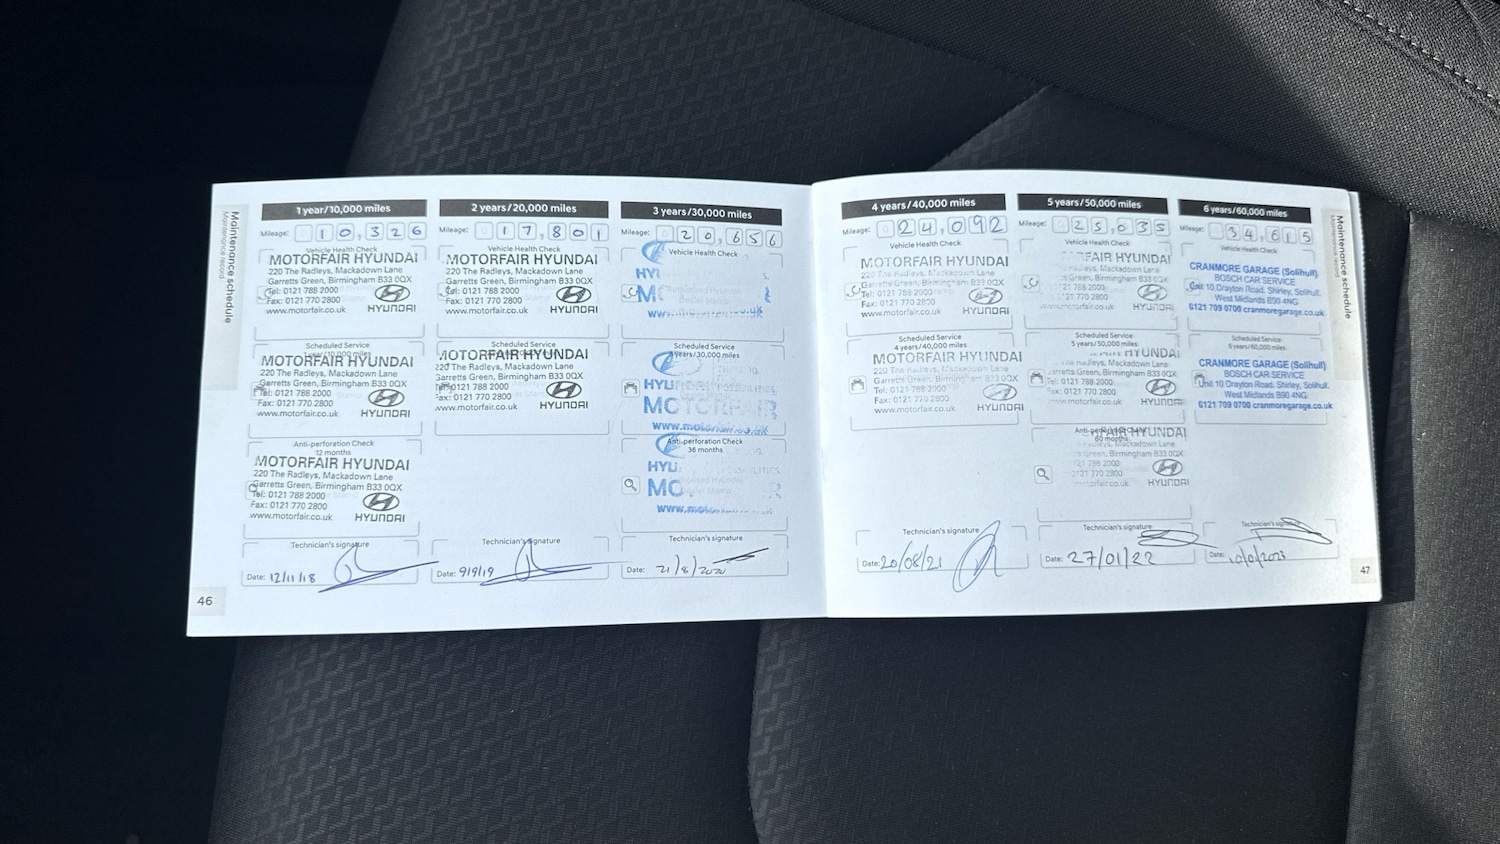 Maintenance schedule
Maintenance record
1 year/10,000 miles
Mileage: 10,326
Vehicle Health Check
MOTORFAIR HYUNDAI
220 The Radleys, Mackadown Lane
Garretts Green, Birmingham B33 0QX
Tel: 0121 788 2000
Fax: 0121 770 2800
www.motorfair.co.uk
HYUNDAI
Scheduled Service
1 year/10,000 miles
MOTORFAIR HYUNDAI
220 The Radleys, Mackadown Lane
Garretts Green, Birmingham B33 0QX
Tel: 0121 788 2000
Fax: 0121 770 2800
www.motorfair.co.uk
HYUNDAI
Anti-perforation Check
12 months
MOTORFAIR HYUNDAI
220 The Radleys, Mackadown Lane
Garretts Green, Birmingham B33 0QX
Tel: 0121 788 2000
Fax: 0121 770 2800
www.motorfair.co.uk
HYUNDAI
Technician's signature
Date: 12/11/18
46
2 years/20,000 miles
Mileage: 17,801
Vehicle Health Check
MOTORFAIR HYUNDAI
220 The Radleys, Mackadown Lane
Garretts Green, Birmingham B33 0QX
Tel: 0121 788 2000
Fax: 0121 770 2800
www.motorfair.co.uk
HYUNDAI
Scheduled Service
MOTORFAIR HYUNDAI
220 The Radleys, Mackadown Lane
Garretts Green, Birmingham B33 0QX
Tel: 0121 788 2000
Fax: 0121 770 2800
www.motorfair.co.uk
HYUNDAI
Technician's signature
Date: 9/9/19
3 years/30,000 miles
Mileage: 20,656
Vehicle Health Check
Scheduled Service
3 years/30,000 miles
MOTORFAIR
www.motorfair.co.uk
Anti-perforation Check
36 months
Technician's signature
Date: 21/8/2020
4 years/40,000 miles
Mileage: 24,092
Vehicle Health Check
MOTORFAIR HYUNDAI
220 The Radleys, Mackadown Lane
Garretts Green, Birmingham B33 0QX
Tel: 0121 788 2000
Fax: 0121 770 2800
www.motorfair.co.uk
HYUNDAI
Scheduled Service
4 years/40,000 miles
MOTORFAIR HYUNDAI
220 The Radleys, Mackadown Lane
Garretts Green, Birmingham B33 0QX
Tel: 0121 788 2000
Fax: 0121 770 2800
www.motorfair.co.uk
HYUNDAI
Technician's signature
Date: 20/08/21
5 years/50,000 miles
Mileage: 25,035
Vehicle Health Check
MOTORFAIR HYUNDAI
Radleys, Mackadown Lane
Green, Birmingham B33 0QX
0121 788 2000
0121 770 2800
motorfair.co.uk
HYUNDAI
Scheduled Service
5 years/50,000 miles
HYUNDAI
Radleys, Mackadown Lane
Garretts Green, Birmingham B33 0QX
Tel: 0121 788 2000
Fax: 0121 770 2800
www.motorfair.co.uk
HYUNDAI
60 months
HYUNDAI
Mackadown Lane
Green, Birmingham B33 0QX
788 2000
770 2800
motorfair.co.uk
HYUNDAI
Technician's signature
Date: 27/01/22
6 years/60,000 miles
Mileage: 34,615
Vehicle Health Check
CRANMORE GARAGE (Solihull)
BOSCH CAR SERVICE
Unit 10 Drayton Road, Shirley, Solihull.
West Midlands B90 4NG
0121 709 0700 cranmoregarage.co.uk
Scheduled Service
6 years/60,000 miles
CRANMORE GARAGE (Solihull)
BOSCH CAR SERVICE
Unit 10 Drayton Road, Shirley, Solihull.
West Midlands B90 4NG
0121 709 0700 cranmoregarage.co.uk
Technician's signature
Date:
Maintenance schedule
Maintenance record
47